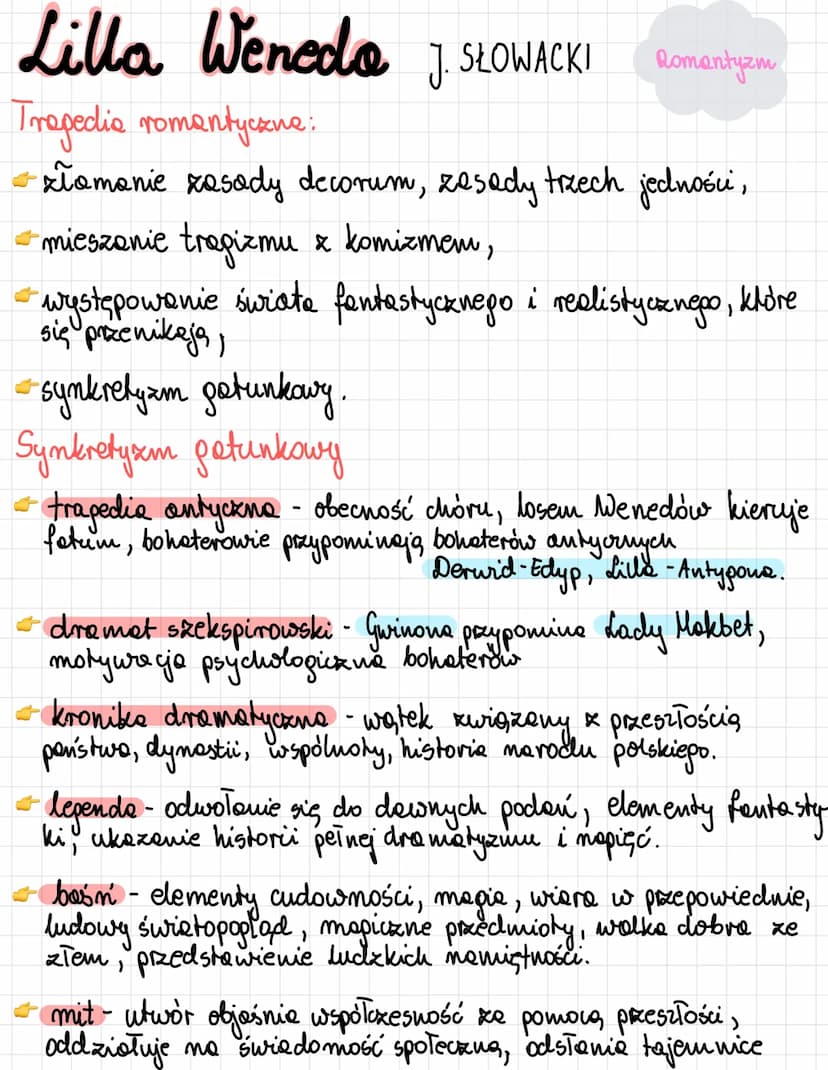 Lilla Weneda J. SŁOWACKI Romantyzm
Tragedia romantyczna:
złamanie zasady decorum, zasady trzech jedności,
mieszanie tragizmu z komizmem,
występowanie świata fantastycznego i realistycznego, które
się przenikają,
synkretyzm gatunkowy.
Synkretyzm gatunkowy
tragedia antyczna - obecność chóru, losem Wenedów kieruje
fatum, bohaterowie przypominają bohaterów antycznych
Derwid-Edyp, Lilla-Antygona.
dramat szekspirowski - Gwinona przypomina Lady Makbet,
motywacja psychologiczna bohaterów
kronika dramatyczna - wątek związany z przeszłością
państwa, dynastii, wspólnoty, historia narodu polskiego.
legenda - odwołanie się do dawnych podań, elementy fantasty
ki, ukazanie historii pełnej dramatyzmu i napięć.
baśń - elementy cudowności, magia, wiara w przepowiednie,
ludowy światopogląd, magiczne przedmioty, walka dobra ze
złem, przedstawienie ludzkich namiętności.
mit - utwór objaśnia współczesność za pomocą przeszłości,
oddziałuje na świadomość społeczną, odsłania tajemnice